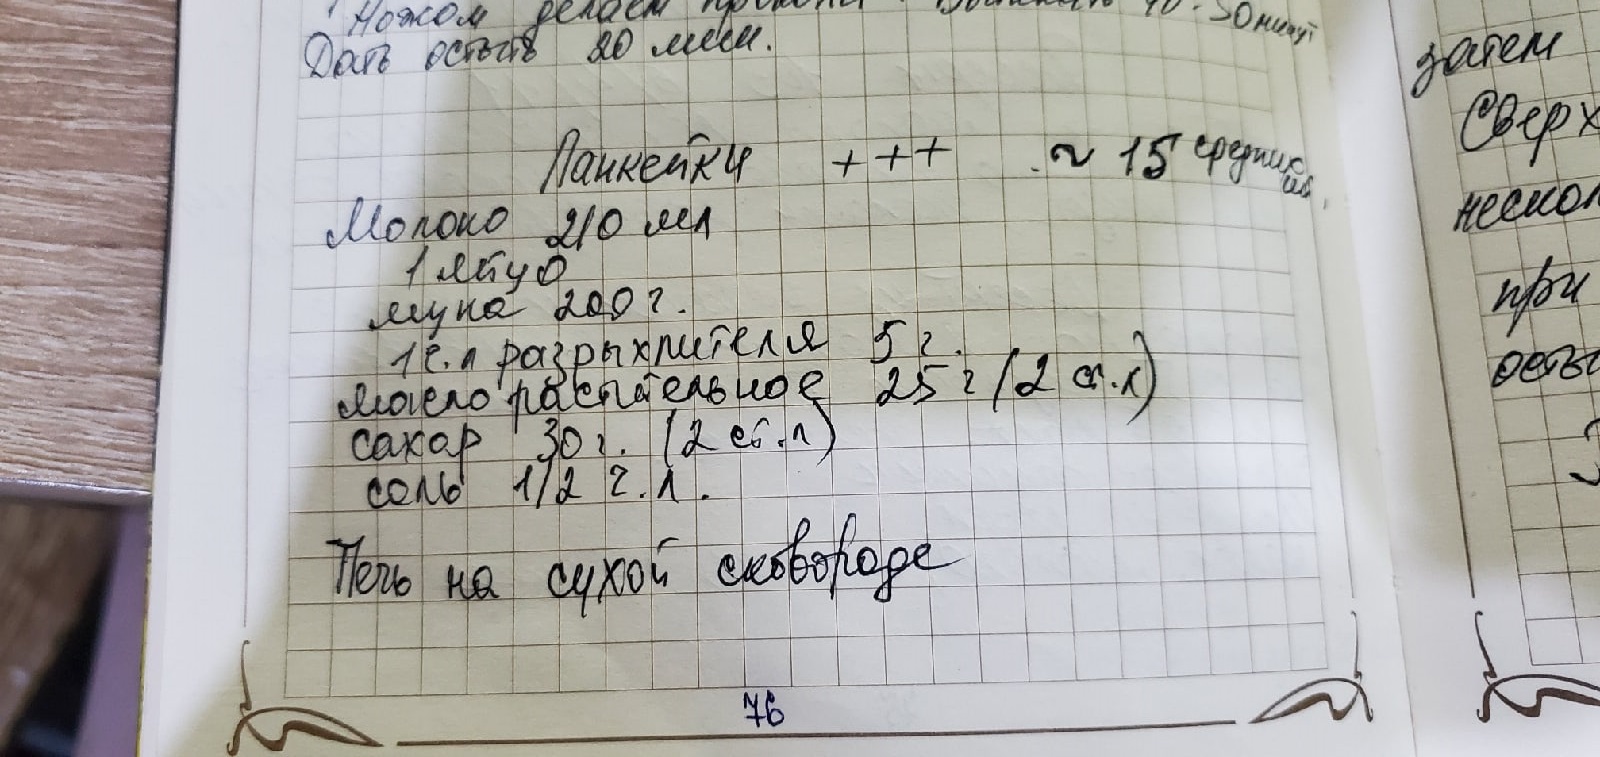 Ножом делаем проколы. Выпекать 40-50 минут
Дать остыть 20 мин.
Панкейки +++ ~ 15 средних
шт.
Молоко 210 мл
1 яйцо
мука 200 г.
1 ч.л разрыхлителя 5 г.
масло растительное 25 г (2 ст.л)
сахар 30 г. (2 ст.л)
соль 1/2 ч.л.
Печь на сухой сковороде
76
затем
Сверх
нескол
при
осты